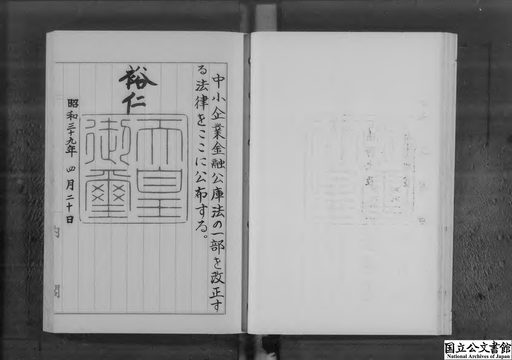 中小企業金融公庫法の一部を改正す
る法律をここに公布する。
裕仁
天皇
御璽
昭和三十九年四月二十日
国立公文書館
National Archives of Japan